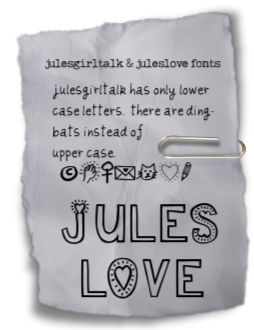 julesgirltalk & juleslove fonts
julesgirltalk has only lower
case letters. there are ding-
bats instead of
upper case.
JULES
LOVE